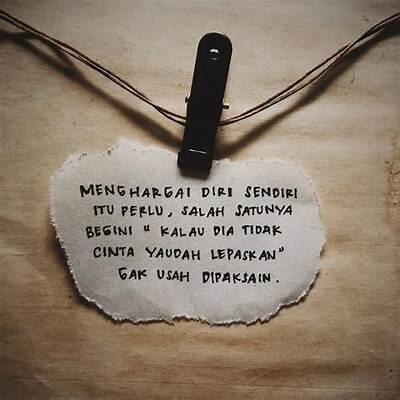 MENGHARGAI DIRI SENDIRI
ITU PERLU, SALAH SATUNYA
BEGINI " KALAU DIA TIDAK
CINTA YAUDAH LEPASKAN"
GAK USAH DIPAKSAIN.